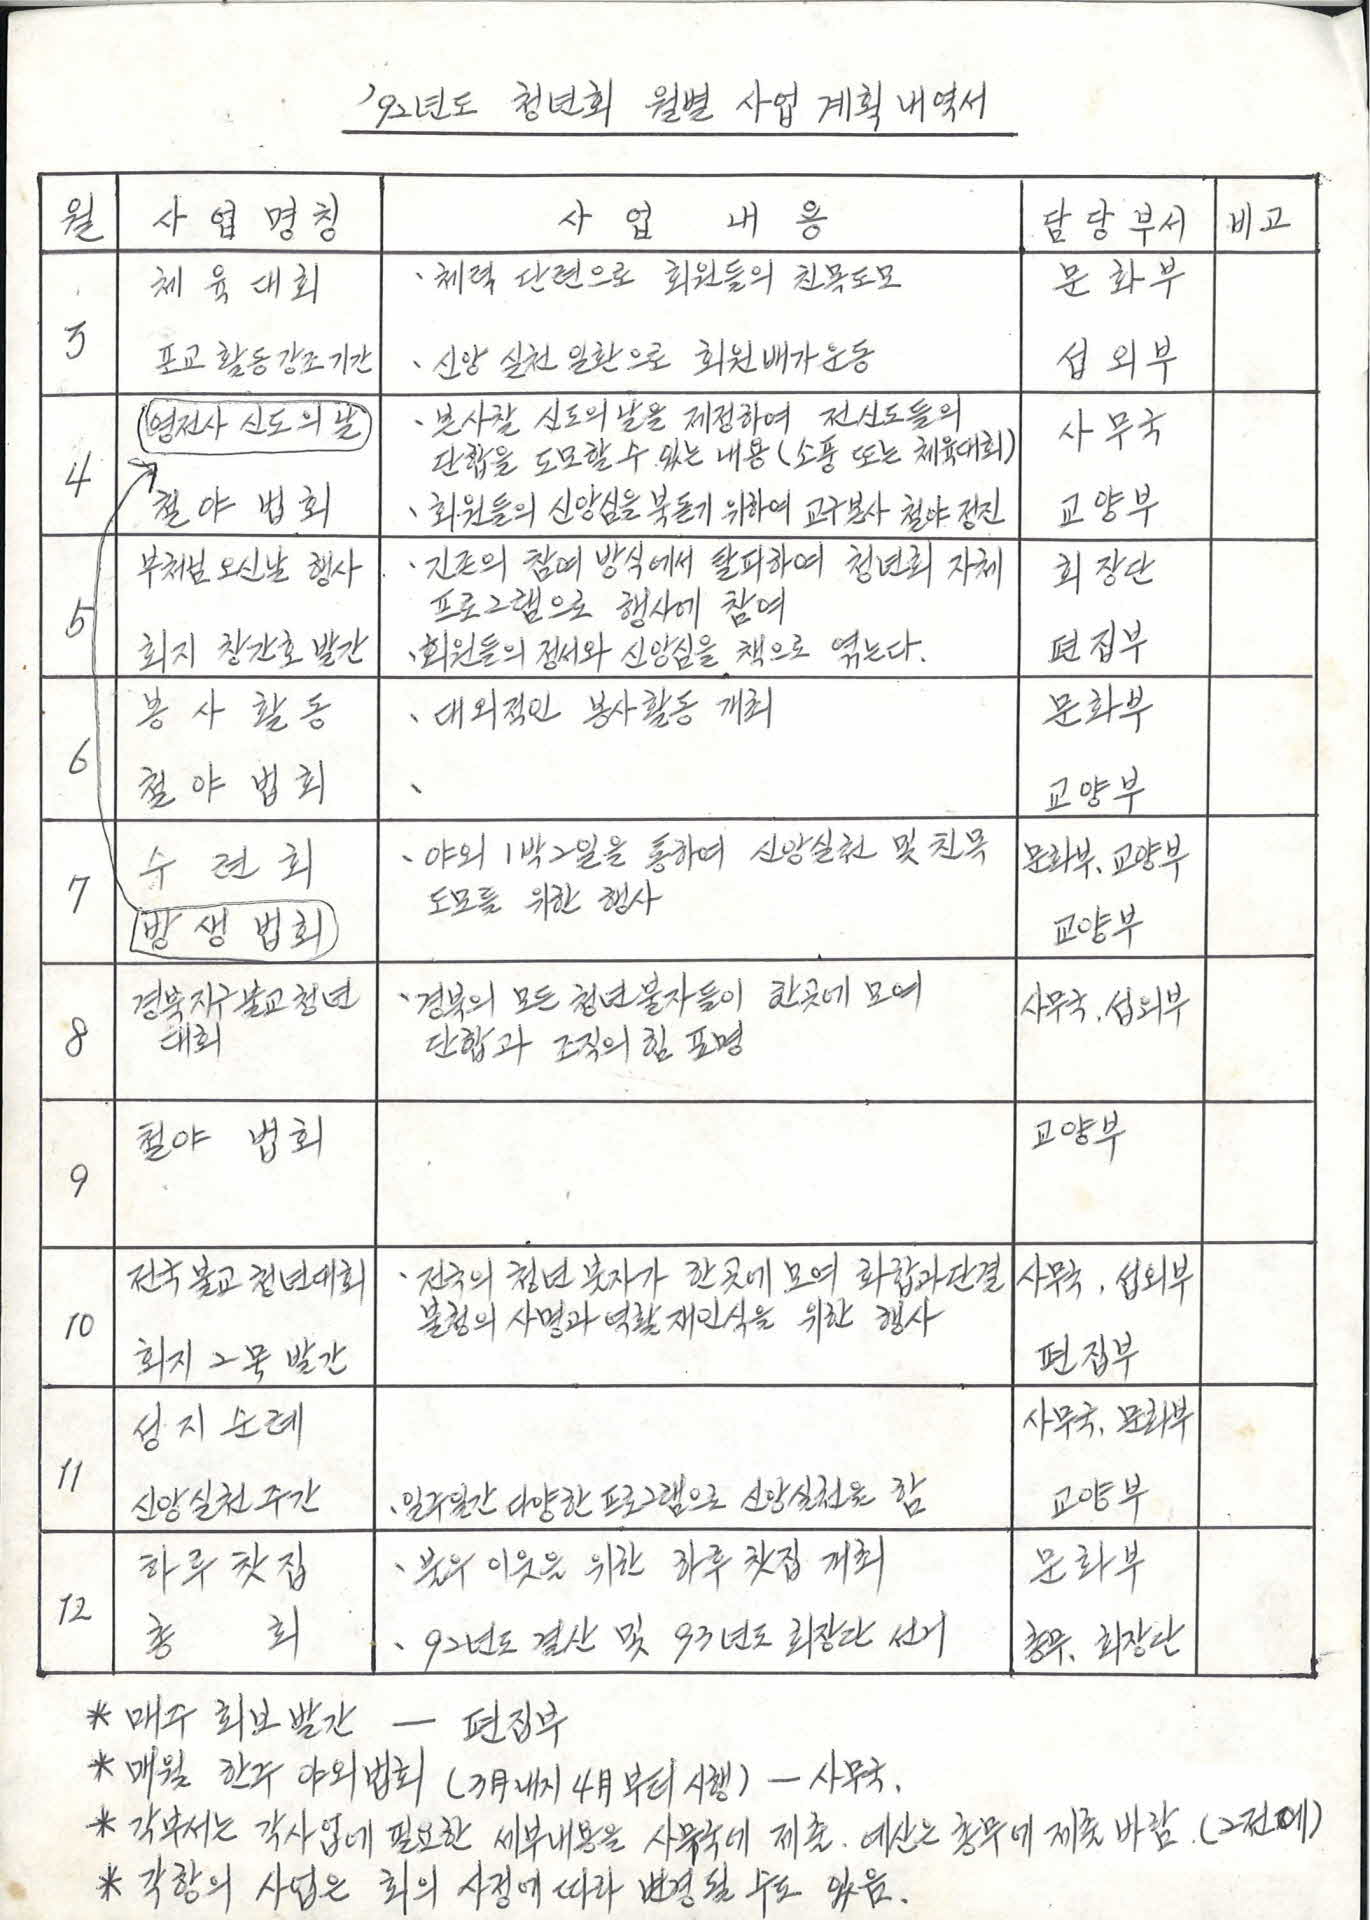 '92년도 청년회 월별 사업 계획 내역서
월 사업명칭 사업 내용 담당부서 비고
3
체육대회 、체력 단련으로 회원들의 친목도모 문화부
포교활동강조기간 、신앙 실천 일환으로 회원배가운동 섭외부
4
영전사 신도의 날 、본사찰 신도의 날을 제정하여 전신도들의 사무국
단합을 도모할 수 있는 내용 (소풍 또는 체육대회)
철야법회 、회원들의 신앙심을 북돋기 위하여 교구본사 철야 정진 교양부
5
부처님 오신날 행사 、기존의 참여 방식에서 탈피하여 청년회 자체 회장단
프로그램으로 행사에 참여
회지 창간호 발간 、회원들의 정서와 신앙심을 책으로 엮는다. 편집부
6
봉사활동 、대외적인 봉사활동 개최 문화부
철야법회 、 교양부
7
수련회 、야외 1박2일을 통하여 신앙실천 및 친목 문화부, 교양부
도모를 위한 행사
방생법회 교양부
8
경북지구불교청년 、경북의 모든 청년 불자들이 한곳에 모여 사무국, 섭외부
대회 단합과 조직의 힘 표명
9
철야 법회 교양부
10
전국불교청년대회 、전국의 청년 붓자가 한곳에 모여 화합과단결 사무국, 섭외부
불청의 사명과 역할 재인식을 위한 행사
회지 2목 발간 편집부
11
성지순례 사무국, 문화부
신앙실천주간 、일주일간 다양한 프로그램으로 신앙실천을 함 교양부
12
하루찻집 、불우 이웃을 위한 하루 찻집 개최 문화부
총 회 、92년도 결산 및 93년도 회장단 선거 총무, 회장단
* 매주 회보 발간 — 편집부
* 매월 한주 야외법회 (3月내지 4月부터 시행) — 사무국.
* 각부서는 각사업에 필요한 세부내용을 사무국에 제출. 예산은 총무에 제출 바람. (2전에)
* 각항의 사업은 회의 사정에 따라 변경될 수도 있음.